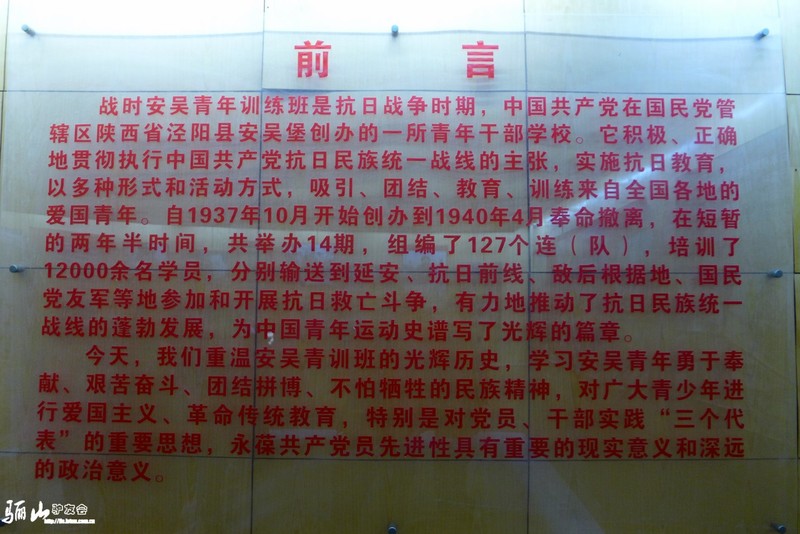 前 言
战时安吴青年训练班是抗日战争时期，中国共产党在国民党管
辖区陕西省泾阳县安吴堡创办的一所青年干部学校。它积极、正确
地贯彻执行中国共产党抗日民族统一战线的主张，实施抗日教育，
以多种形式和活动方式，吸引、团结、教育、训练来自全国各地的
爱国青年。自1937年10月开始创办到1940年4月奉命撤离，在短暂
的两年半时间，共举办14期，组编了127个连（队），培训了
12000余名学员，分别输送到延安、抗日前线、敌后根据地、国民
党友军等地参加和开展抗日救亡斗争，有力地推动了抗日民族统一
战线的蓬勃发展，为中国青年运动史谱写了光辉的篇章。
今天，我们重温安吴青训班的光辉历史，学习安吴青年勇于奉
献、艰苦奋斗、团结拼博、不怕牺牲的民族精神，对广大青少年进
行爱国主义、革命传统教育，特别是对党员、干部实践“三个代
表”的重要思想，永葆共产党员先进性具有重要的现实意义和深远
的政治意义。
骊山驴友会